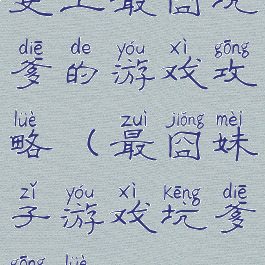 史上最囧坑
diē de yóu xì gōng
爹的游戏攻
lüè zuì jiǒng mèi
略（最囧妹
zǐ yóu xì kēng diē
子游戏坑爹
gōng lüè